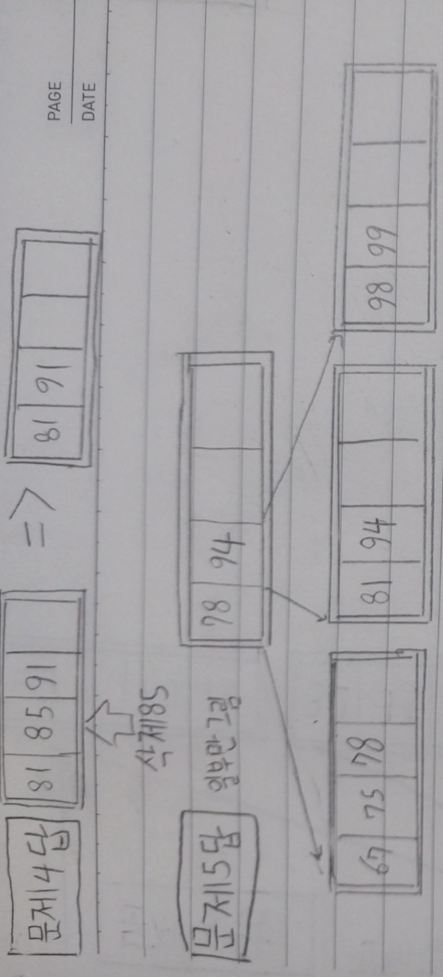 PAGE
DATE
문제4답
81 85 91 => 81 91
삭제85
문제5답 일부만 그림
78 94
67 75 78
81 94
98 99